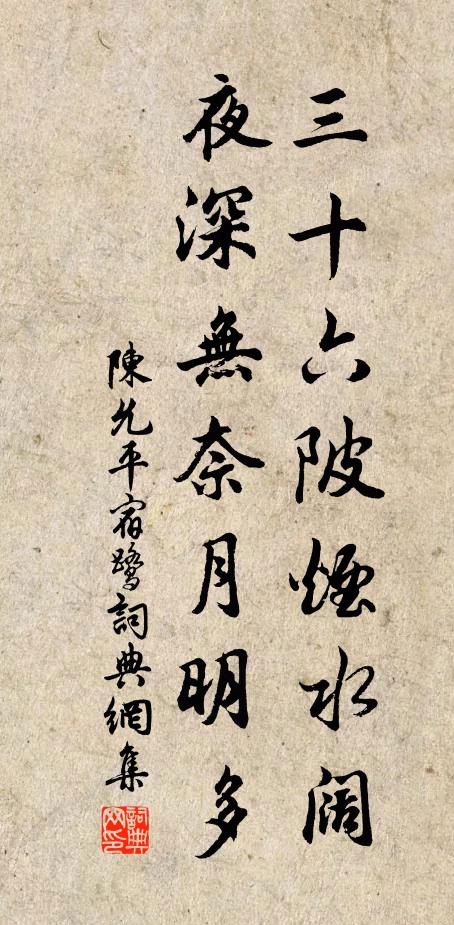 三十六陂煙水阔
夜深無奈月明多
陳允平宿鹭詞典網集
詞典网印